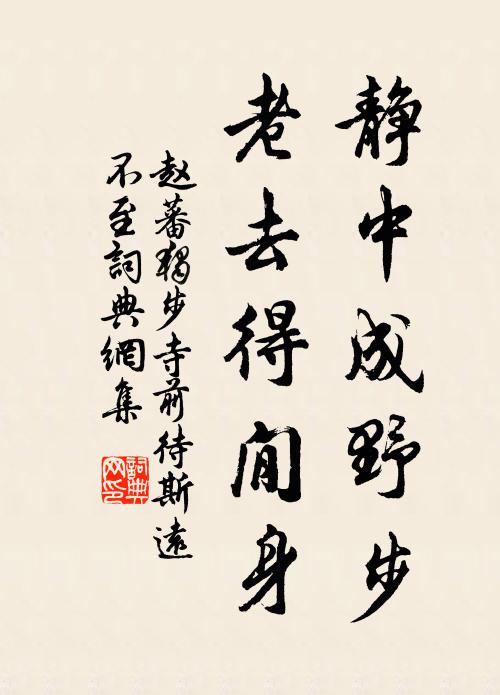 静中成野步
老去得閒身
赵蕃独步寺前待斯遠
不至詞典網集
詞典网印